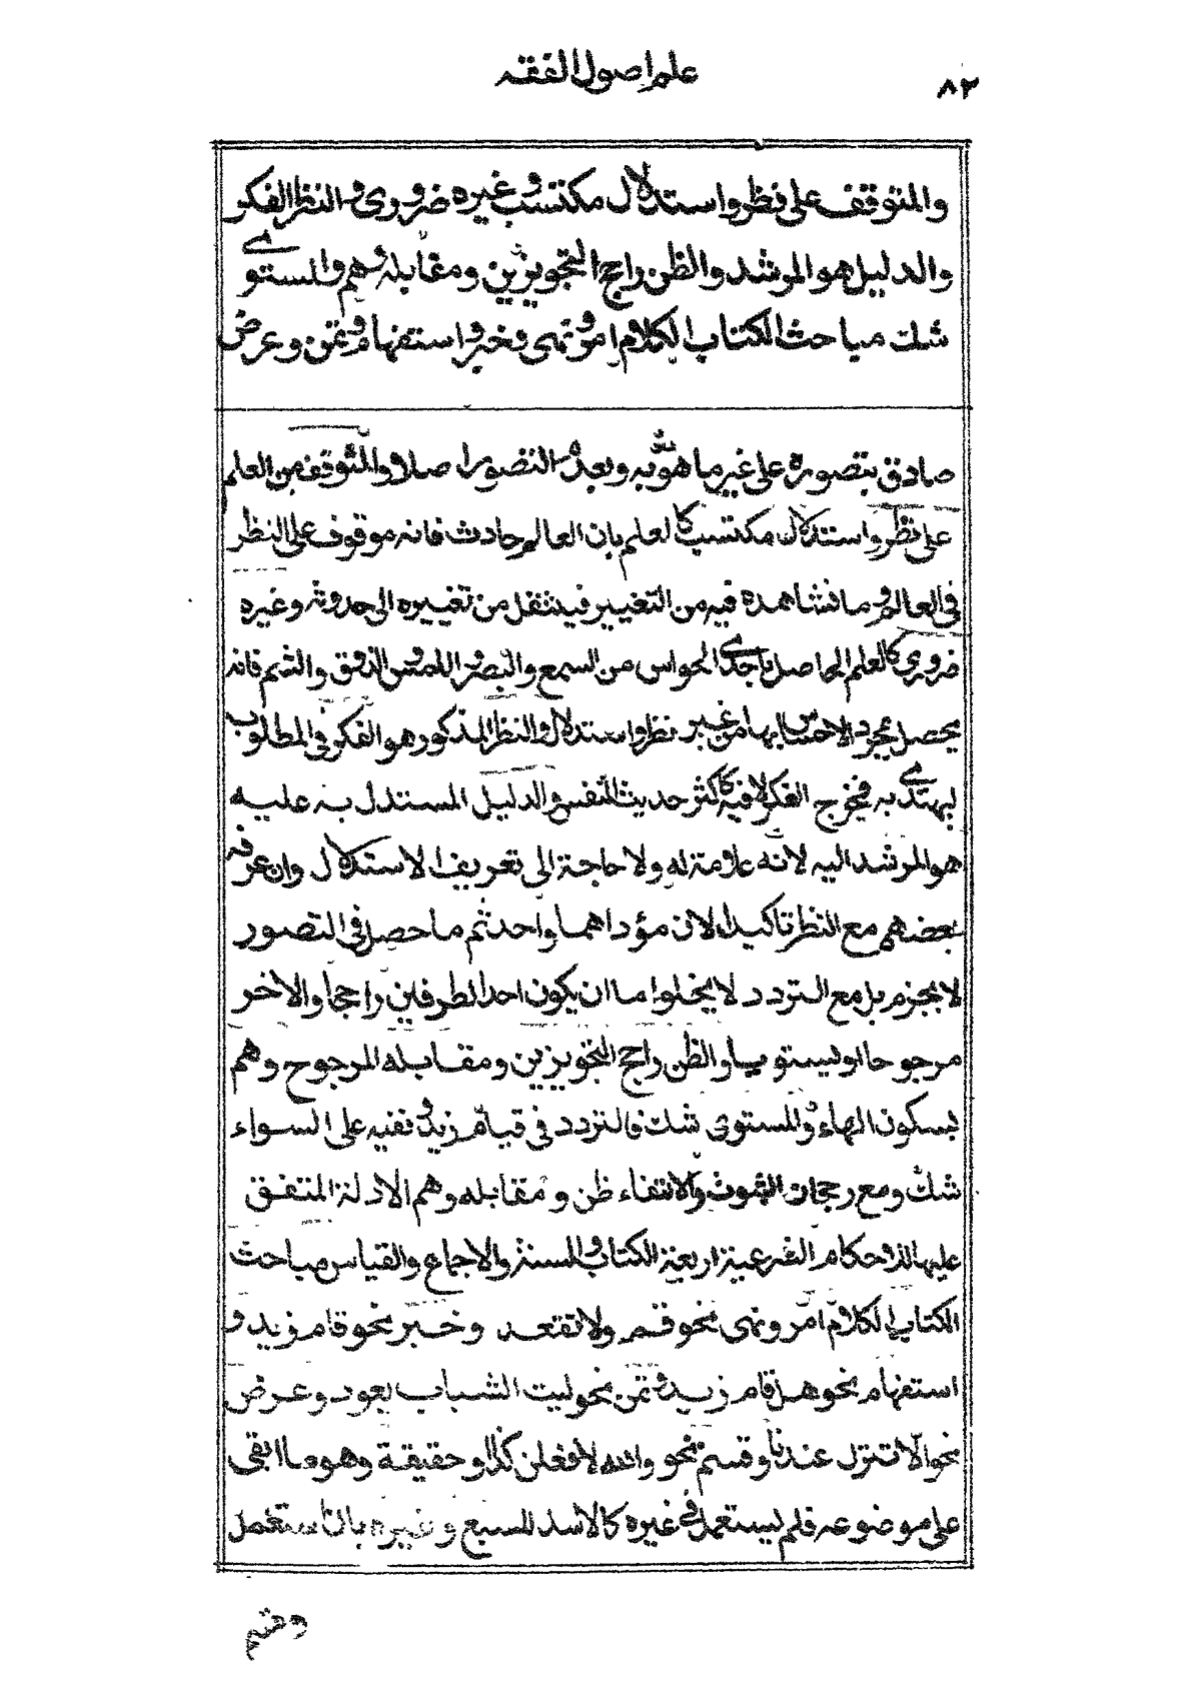 علم اصول الفقه
٨٢
والمتوقف على نظر واستدلال مكتسب وغيره ضروري والنظر الفكر
والدليل هو المرشد والظن راجح التجويزين ومقابله وهم والمستوي
شك مباحث الكتاب الكلام امر ونهى وخبر واستفهام وتمن وعرض
صادق بتصوره على غير ما هو به وبعدم التصور اصلا والمتوقف من العلم
على نظر واستدلال مكتسب كالعلم بان العالم حادث فانه موقوف على النظر
فى العالم وما نشاهده فيه من التغيير فينتقل من تغييره الى حدوثه وغيره
ضروري كالعلم الحاصل باحدى الحواس من السمع والبصر واللمس والذوق والشم فانه
يحصل بمجرد الاحساس بها من غير نظر واستدلال والنظر المذكور هو الفكر فى المطلوب
ليهتدى به فيخرج الفكر لا فيه كاكثر حديث النفس والدليل المستدل به عليه
هو المرشد اليه لانه علامة له ولا حاجة الى تعريف الاستدلال وان عرفه
بعضهم مع النظر تاكيدا لان مؤداهما واحد ثم ما حصل فى التصور
لا بجزم بل مع التردد لا يخلوا ما ان يكون احد الطرفين راجحا والاخر
مرجوحا او يستويا والظن راجح التجويزين ومقابله المرجوح وهم
بسكون الهاء والمستوى شك فالتردد فى قيام زيد ونفيه على السواء
شك ومع رجحان الثبوت والانتفاء ظن ومقابله وهم الادلة المتفق
عليها للاحكام الشرعية اربعة الكتاب والسنة والاجماع والقياس مباحث
الكتاب الكلام امر ونهى نحو قم ولا تقعد وخبر نحو قام زيد و
استفهام نحو هل قام زيد وتمن نحو ليت الشباب يعود وعرض
نحو الا تنزل عندنا وقسم نحو والله لافعلن كذا وحقيقة وهو ما ابقى
على موضوعه فلم يستعمل فى غيره كالاسد للسبع وغيره بان استعمل